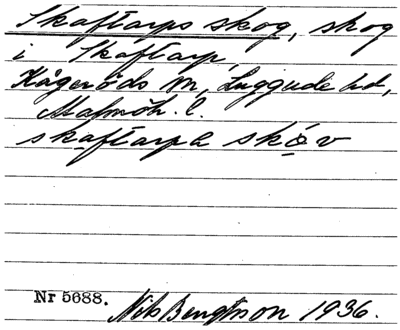 Skaftarps skog, skog
i Skaftarp,
Kågeröds sn, Luggude hd,
Malmöh. l.
skaftarpa skǫv
Nr 5688. Nils Bengtsson 1936.